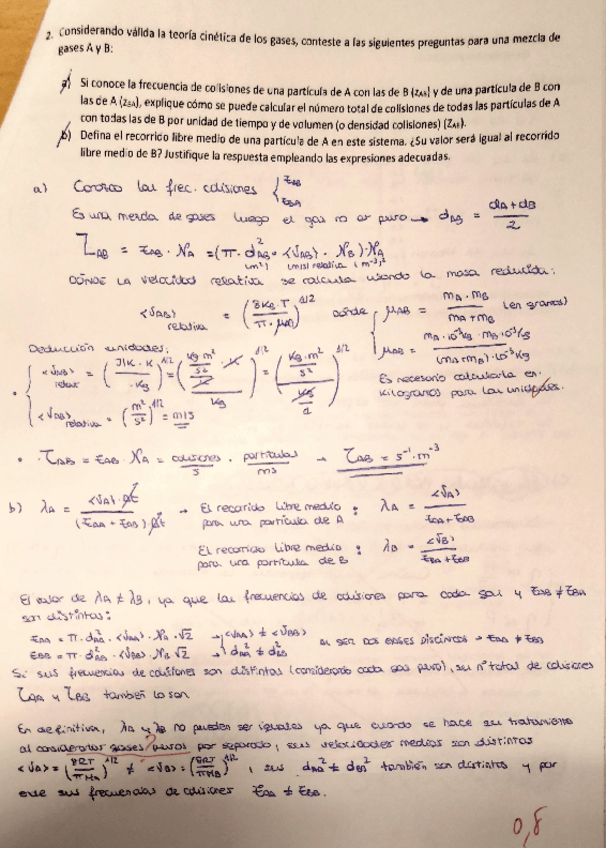 2. Considerando válida la teoría cinética de los gases, conteste a las siguientes preguntas para una mezcla de
gases A y B:
a) Si conoce la frecuencia de colisiones de una partícula de A con las de B (z_AB) y de una partícula de B con
las de A (z_BA), explique cómo se puede calcular el número total de colisiones de todas las partículas de A
con todas las de B por unidad de tiempo y de volumen (o densidad colisiones) (Z_AB).
b) Defina el recorrido libre medio de una partícula de A en este sistema. ¿Su valor será igual al recorrido
libre medio de B? Justifique la respuesta empleando las expresiones adecuadas.
a) Conozco las frec. colisiones { z_AB
z_BA
Es una mezcla de gases luego el gas no es puro → d_AB = (d_A + d_B)/2
Z_AB = z_AB · N_A = (π · d_AB² · <V_AB> · N_B) · N_A
(m²) (m/s) relativa (m⁻³)²
DÓNDE LA velocidad relativa se calcula usando la masa reducida:
<V_AB> relativa = (8K_B·T / π·μ_AB)^1/2 dónde { μ_AB = m_A · m_B / (m_A + m_B) (en gramos)
μ_AB = m_A·10⁻³kg · m_B·10⁻³kg / (m_A + m_B)·10⁻³kg
Es necesario calcularla en
kilogramos para las unidades.
Deducción unidades:
<V_AB> relativ = (J/K · K / Kg)^1/2 = (Kg m²/s² / K · K / Kg)^1/2 = (Kg·m²/s² / Kg/1)^1/2
<V_AB> relativa = (m²/s²)^1/2 = m/s
• Z_AB = z_AB · N_A = colisiones/s · partículas/m³ → Z_AB = s⁻¹·m⁻³
b) λ_A = <V_A>·Δt / (z_AA + z_AB)·Δt → El recorrido libre medio para una partícula de A : λ_A = <V_A> / z_AA + z_AB
El recorrido libre medio para una partícula de B : λ_B = <V_B> / z_BA + z_BB
El valor de λ_A ≠ λ_B, ya que las frecuencias de colisiones para cada gas y z_AB ≠ z_BA
son distintas:
z_AA = π · d_AA² · <V_AA> · N_A √2 → <V_AA> ≠ <V_BB>
z_BB = π · d_AB² · <V_BB> · N_B √2 → d_AA² ≠ d_BB²
AL SER DOS GASES DISTINTOS → z_AA ≠ z_BB
Si sus frecuencias de colisiones son distintas (considerando cada gas puro), su nº total de colisiones
Z_AA y Z_BB también lo son
En definitiva, λ_A y λ_B no pueden ser iguales ya que cuando se hace su tratamiento
al considerarlos gases? puros por separado, sus velocidades medias son distintas
<V_A> = (8RT/πM_A)^1/2 ≠ <V_B> = (8RT/πM_B)^1/2, sus d_AA² ≠ d_BB² también son distintos y por
ende sus frecuencias de colisiones z_AA ≠ z_BB.
0,8